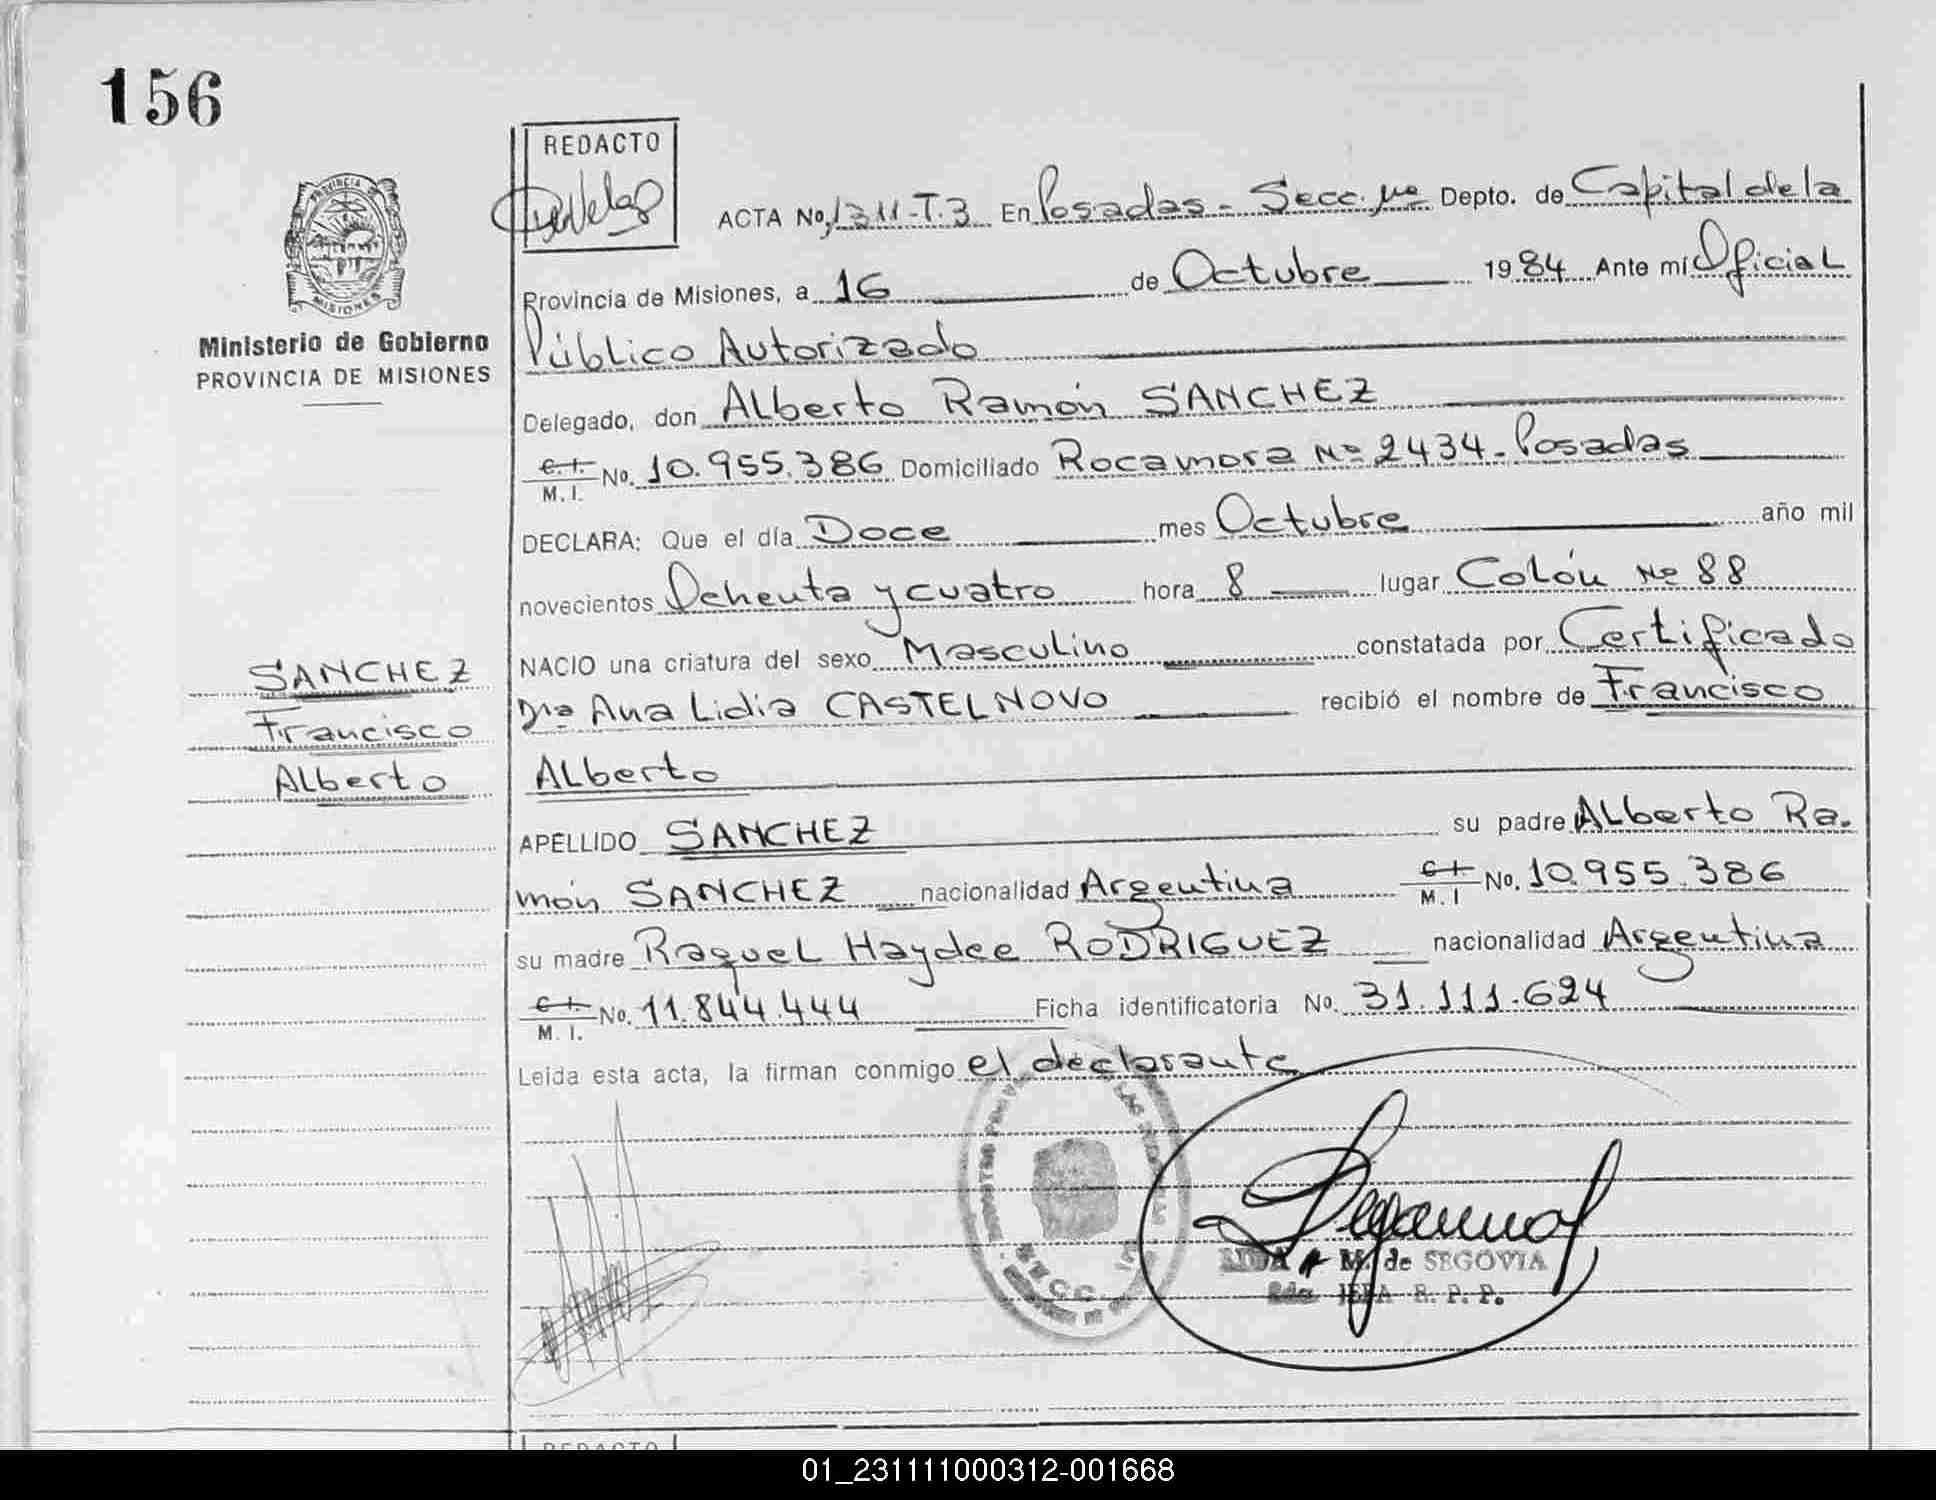 156
REDACTO
PROVINCIA DE
MISIONES
Ministerio de Gobierno
PROVINCIA DE MISIONES
ACTA No. 1311-T.3 En Posadas - Secc. 1ra Depto. de Capital de la
Provincia de Misiones, a 16 de Octubre 1984 Ante mí Oficial
Público Autorizado
Delegado, don Alberto Ramón SANCHEZ
C.I.
M.I. No. 10.955.386 Domiciliado Rocamora Nº 2434 - Posadas
DECLARA: Que el día Doce mes Octubre año mil
novecientos Ochenta y cuatro hora 8 lugar Colón Nº 88
NACIO una criatura del sexo Masculino constatada por Certificado
Dra Ana Lidia CASTELNOVO recibió el nombre de Francisco
Alberto
APELLIDO SANCHEZ su padre Alberto Ra-
món SANCHEZ nacionalidad Argentina C.I.
M.I No. 10.955.386
su madre Raquel Haydee RODRIGUEZ nacionalidad Argentina
C.I.
M.I. No. 11.844.444 Ficha identificatoria No. 31.111.624
Leída esta acta, la firman conmigo el declarante
SANCHEZ
Francisco
Alberto
SECC
M. de SEGOVIA
2da JEFA R. P. P.
REDACTO
01_231111000312-001668